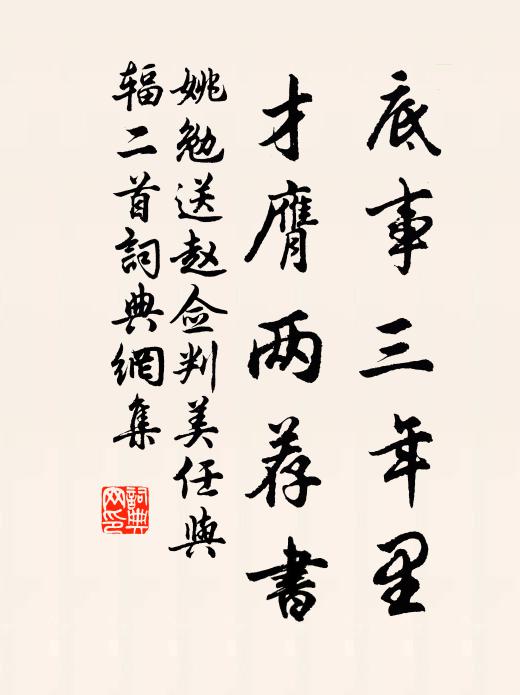 底事三年里
才膺两荐書
姚勉送赵佥判美任與
辐二首詞典網集
詞典網印